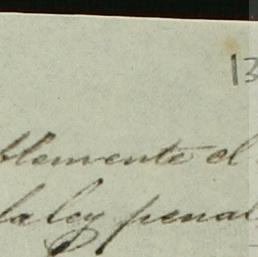 13
blemente el
la ley penal